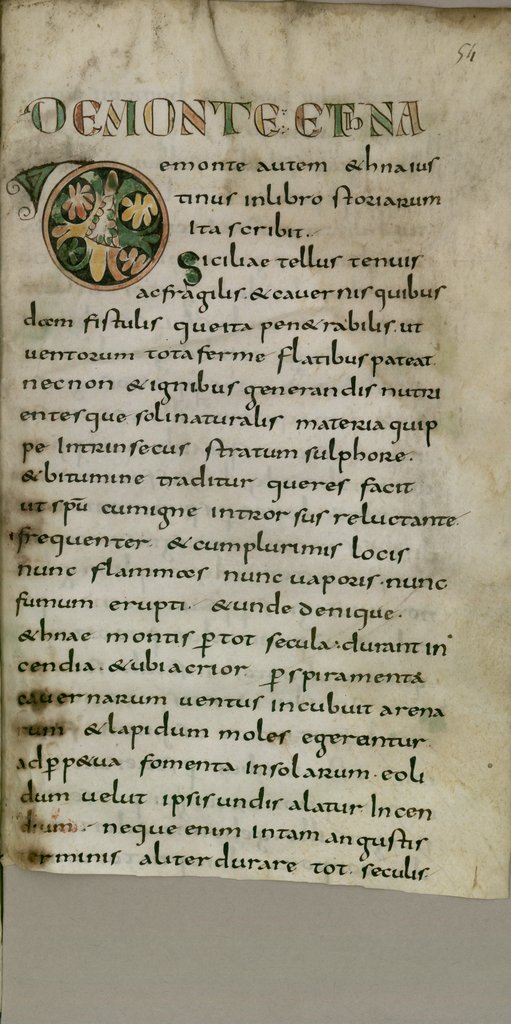 54
DE MONTE : ETHNA
De monte autem &hna ius
tinus in libro storiarum
Ita scribit.
Siciliae tellus tenuis
ac fragilis. & cavernis quibus
dam fistulis que ita pen&rabilis. ut
ventorum tota ferme flatibus pateat.
nec non & ignibus generandis nutri
entesque soli naturalis materia quip
pe Intrinsecus stratum sulphore.
& bitumine traditur que res facit
ut spu cum igne introrsus reluctante.
frequenter. & cumplurimis locis
nunc flammas nunc vaporis. nunc
fumum erupti. & unde denique.
&hnae montis p tot secula. durant in
cendia. & ubi acrior p spiramenta
cavernarum ventus incubuit arena
rum & lapidum moles egerantur.
ad pp&ua fomenta insolarum. eoli
dum velut ipsis undis alatur Incen
dium. neque enim in tam angustis
terminis aliter durare tot. seculis.